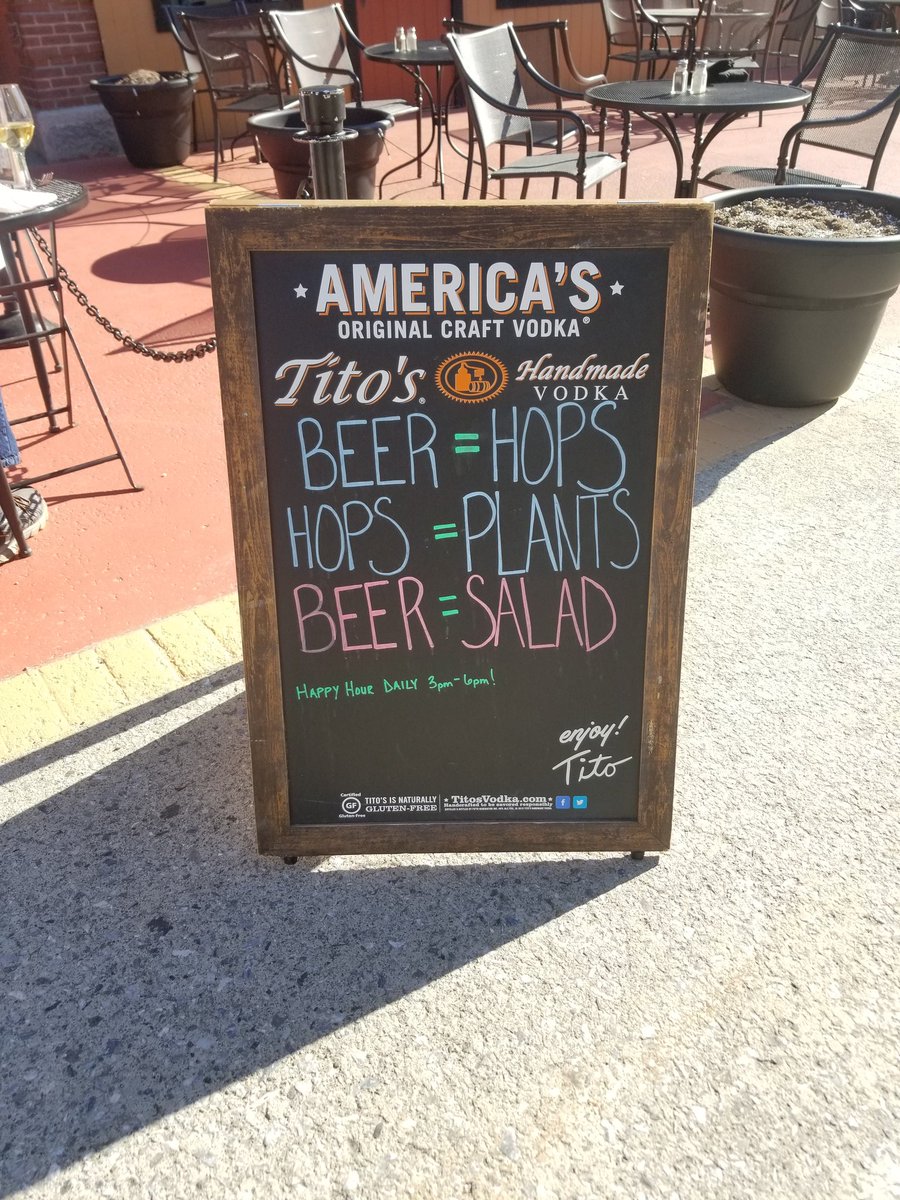 AMERICA'S
ORIGINAL CRAFT VODKA®
Tito's® Handmade
VODKA
BEER = HOPS
HOPS = PLANTS
BEER = SALAD
HAPPY HOUR DAILY 3pm-6pm!
enjoy!
Tito
Certified
GF
Gluten-Free
TITO'S IS NATURALLY
GLUTEN-FREE
TitosVodka.com
Handcrafted to be savored responsibly